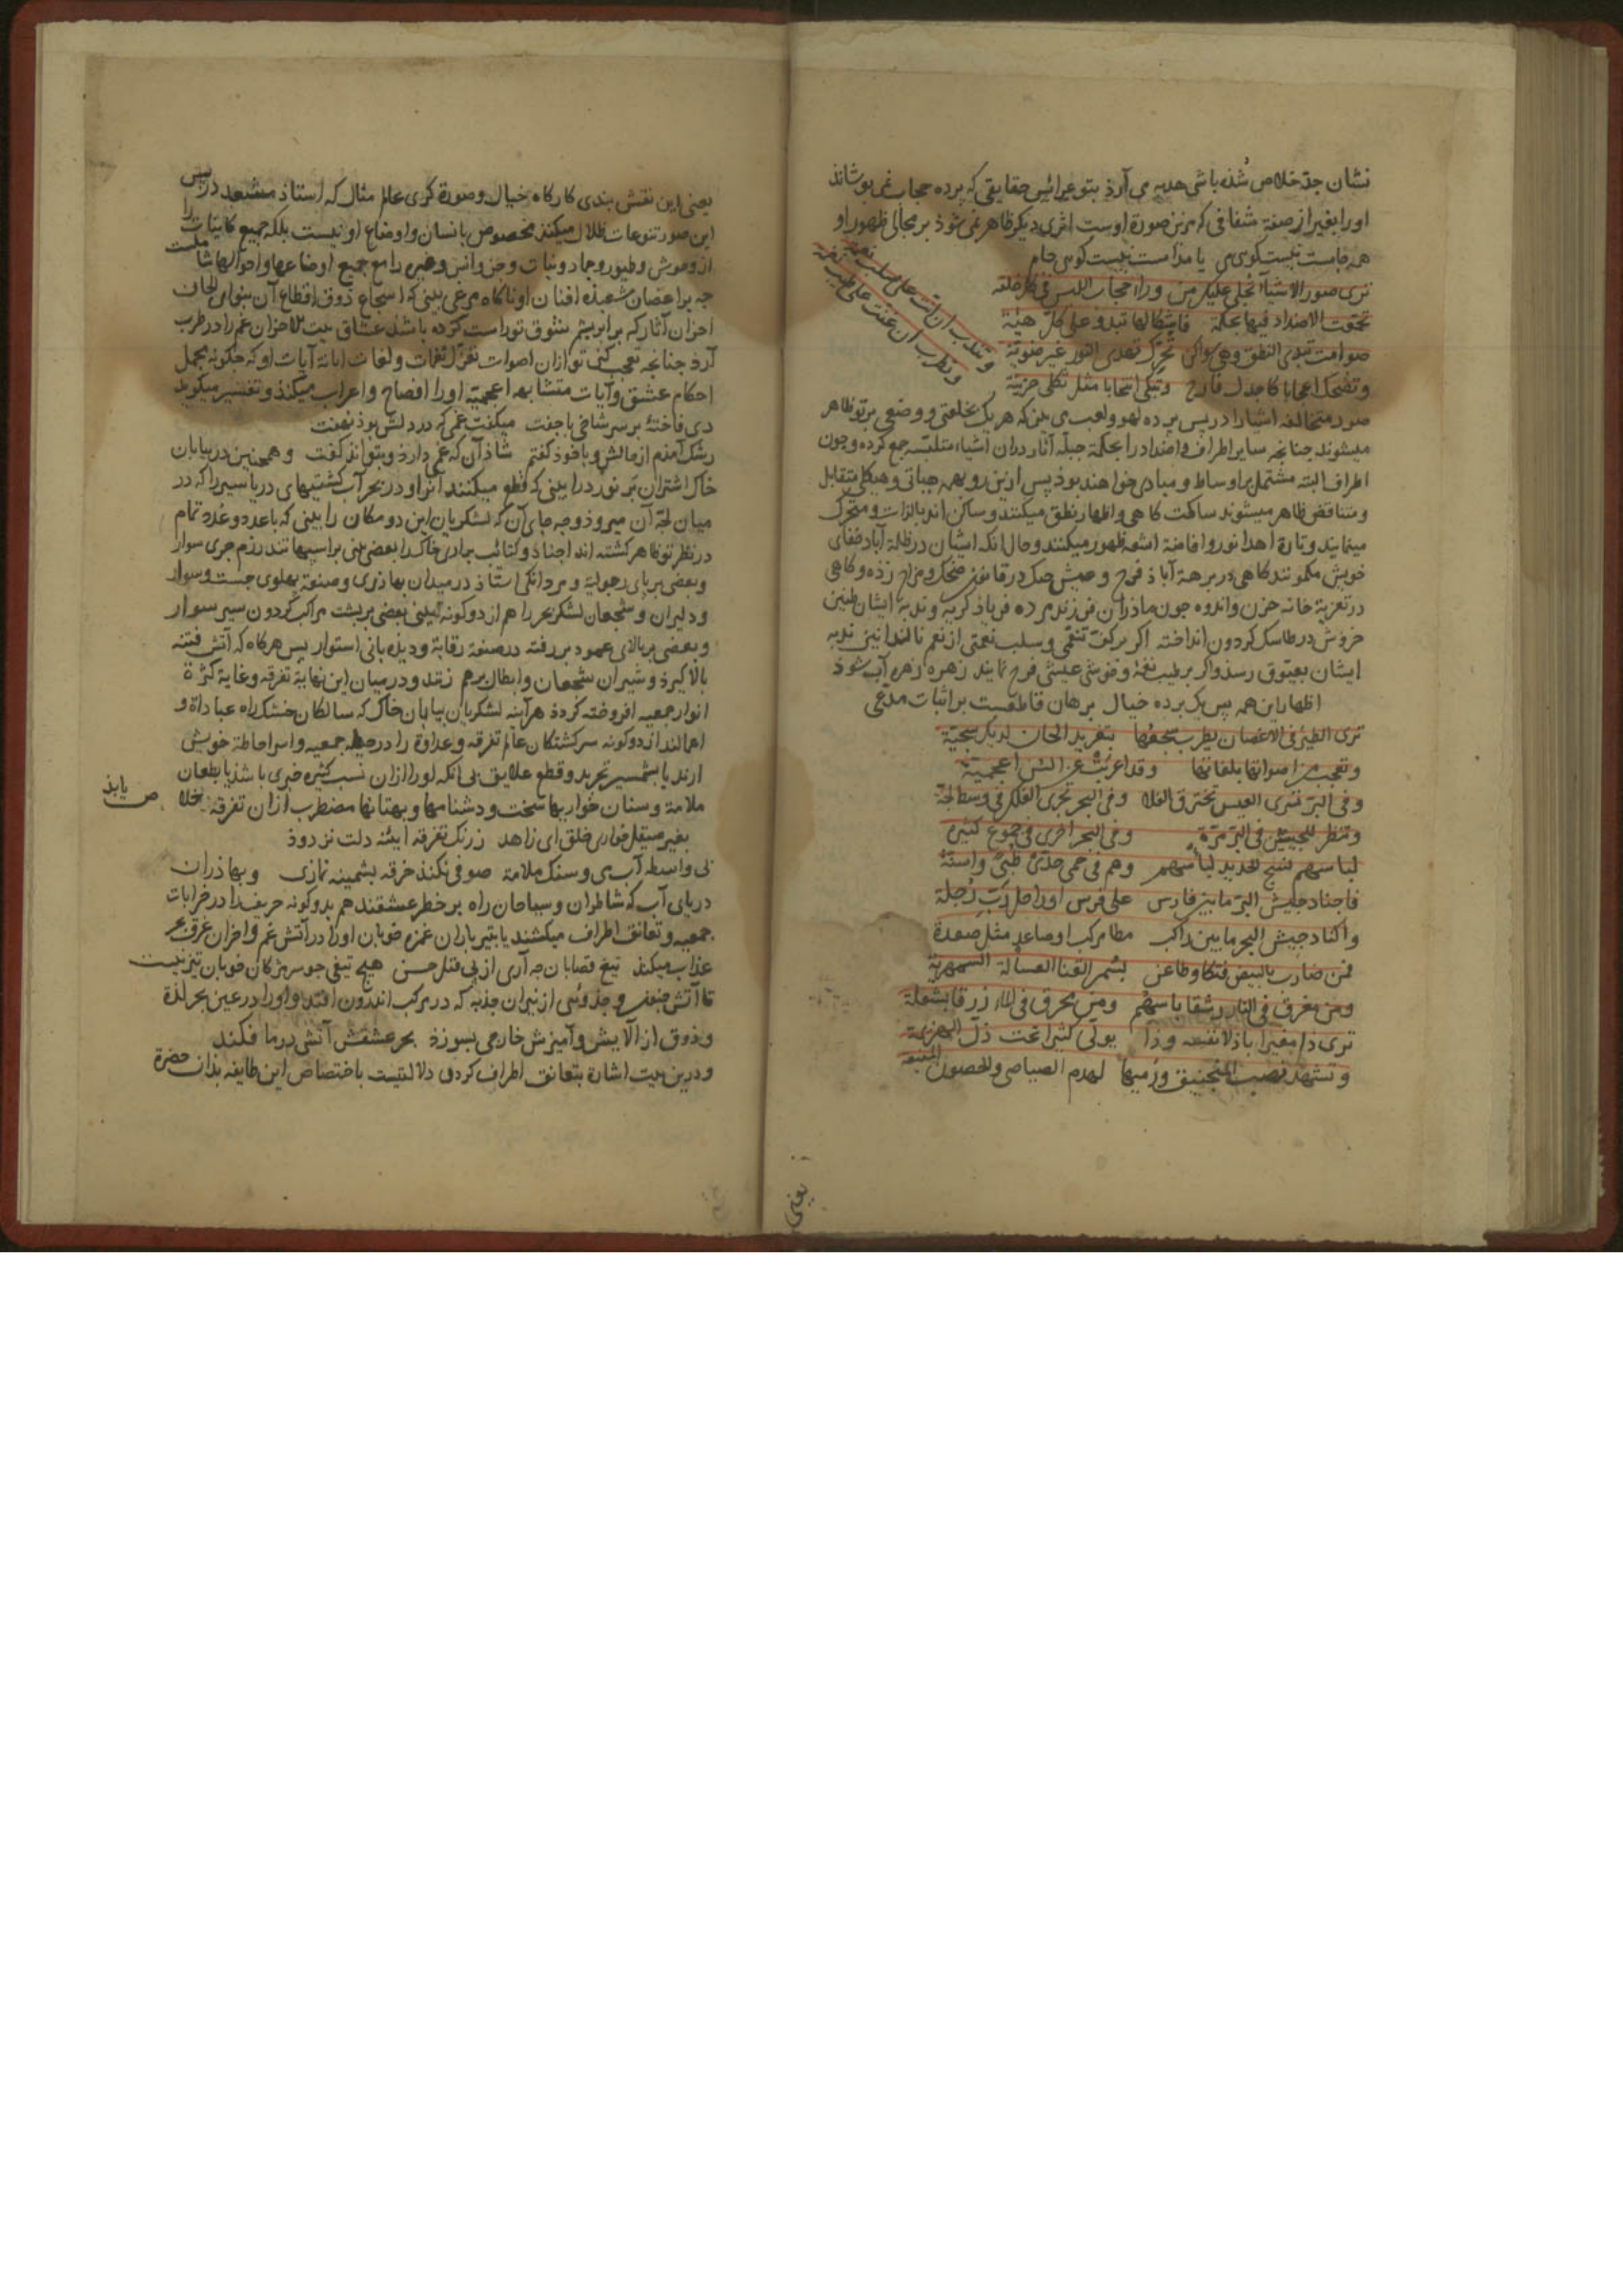 نشان جذ خلاص شذه باشی هدیه می آرذ بتو عرائس حقایقی که پرده حجاب نمی پوشاند
اورا بغیر از صفة شفافی که مزین صورة اوست اثری دیکر ظاهر نمی شوذ بر مجالی ظهور او
همه جامست نیست کوی می یا مدامست نیست کوی جام
تری صور الاشیاء تجلی علیک من وراء حجاب اللبس فی کل خلقه
تجمعت الاضداد فیها بحکمة فاشکالها تبدو علی کل هیئة
صوامت تبدی النطق وهی سواکن تحرک تهدی النور غیر ضویة
وتضحک اعجابا کاجذل فارح وتبکی انتحابا مثل ثکلی حزینة
وتندب ان انت علی سلب نعمة
وتطرب ان غنت علی طیب نغمة
صور متخالفه اشیارا در پس پرده لهو ولعب می بین که هر یک بخلقتی ووضعی بر تو ظاهر
میشوند چنانچه سایر اطراف واضداد را بحکمة جبلّه آثار دران اشیاء متلبّسه جمع کرده وچون
اطراف البته مشتمل بر اوساط ومبادی خواهند بوذ پس ازین رو بهمه هیاتی وهیکلی متقابل
ومتناقض ظاهر میشوند ساکت کاهی واظهار نطق میکنند وساکن اند بالذات ومتحرک
مینمایند وتارة اهدا نور وافاضة اشعه ظهور میکنند وحال انکه ایشان در ظلمة آباد خفای
خویش مکمونند کاهی در برهة آباد فرح وعیش چنک در قانون ضحک ومزاح زده وکاهی
در تعزیة خانه حزن واندوه چون ماذران فرزند مرده فریاذ کریه وندبه ایشان طنین
خروش در طاسک کردون انداخته اکر بر فوت تنعّمی وسلب نعمتی از نعم نالند انین ندبه
ایشان بعیوق رسد واکر بر طیب نغمه وخوشی عیشی فرح نمایند زهره زهره آب شوذ
اظهار این همه پس یک پرده خیال برهان قاطعست بر اثبات مدّعی
تری الطیر فی الاغصان یطرب سجعها بتغرید الحان لدیک شجیة
وتعجب من اصواتها بلغاتها وقد اعربت عن السن اعجمیة
وفی البرّ تسری العیس تخترق الفلا وفی البحر تجری الفلک فی وسط لجة
وتنظر للجیشین فی البرّ مرّة وفی البحر اخری فی جموع کثیره
لباسهم نسج الحدید لباسهم وهم فی حمی حدّی ظبی واسنة
فاجناد جیش البرّ ما بین فارس علی فرس او راجل ربّ رُجلة
واکناد جیش البحر ما بین راکب مطا مرکب او صاعد مثل صعدة
فمن ضارب بالبیض فتکا وطاعن بسمر القنا العسالة السمهریة
ومن مغرق فی النار رشقا باسهم ومن محرق فی الماء زرقا بشعلة
تری ذا مغیرا باذلا نفسه وذا یولی کثیرا تحت ذلّ الهزیمة
وتشهد نصب المنجنیق ورمیها لهدم الصیاصی والحصون المنیعة
یعنی
یعنی این نقش بندی کارکاه خیال وصورة کری عالم مثال که استاذ مشعبد در پس
این صور تنوعات ظلال میکند مخصوص بانسان واوضاع او نیست بلکه جمیع کاینات را
از وحوش وطیور وجماد ونبات وجن وانس وغیره را مع جمیع اوضاعها واحوالها شاملست
چه بر اغصان شعبذه افنان او ناکاه مرغی بینی که اسجاع ذوق اقطاع آن بنوای الحان
احزان آثار که بر ابریشم شوق تو راست کرده باشد عشاق بیت الاحزان غم را در طرب
آرذ چنانچه تعجب کنی تو از ان اصوات نغز نغمات ولغات ابانة آیات او که چکونه مجمل
احکام عشق وآیات متشابه اعجمیة اورا افصاح واعراب میکند وتفسیر میکوید
دی فاختهٔ بر سر شاخی با جفت میکفت غمی که در دلش بوذ نهفت
رشک آمذم از مالش وبا خوذ کفتم شاذ آن که غمی دارذ وبتواند کفت وهمچنین در بیابان
خاک اشتران بر نورد را بینی که قطع میکنند آنرا ودر بحر آب کشتیهای دریا سیر را که در
میان لجّه آن میروذ وچه جای آن که لشکریان این دو مکان را بینی که با عدد وعُدد تمام
در نظر تو ظاهر کشته اند اجناد وکتائب براری خاک را بعضی بینی بر اسپهای تند رزم جری سوار
وبعضی بر پای رجولیة ومردانکی استاذ در میدان بهاذری وصنعة پهلوی جست وسوار
ودلیران وشجعان لشکر بحر را هم از دو کونه بینی بعضی بر پشت مراکب کردون سیر سوار
وبعضی بر بالای عمود بر رفته در صنعة رقابة ودیذه بانی استوار پس هرکاه که آتش فتنه
بالا کیرذ وشیران شجعان وابطال بر هم زنند ودر میان این نهایة تفرقه وغایة کثرة
انوار جمعیه افروخته کردذ هر آینه لشکریان بیابان خاک که سالکان خشک راه عبادات و
اعمالند از دو کونه سرکشتکان عالم تفرقه وعداوة را در حیطه جمعیه واسر احاطة خویش
ارند یا بشمشیر تجرید وقطع علایق بی انکه اورا ازان نسب کثیره خبری باشد یا بطعان
ملامة وسنان خواریها سخت ودشنامها وبهتانها مضطرب ازان تفرقه خلا
ص یابذ
بغیر صیقل خواری خلق ای زاهد ز زنک تفرقه ایینه دلت نزدوذ
بی واسطه آب می وسنک ملامة صوفی نکند خرقه پشمینه نمازی وبهاذران
دریای آب که شاطران وسیاحان راه بر خطر عشقند هم بدو کونه حریف را در خرابات
جمعیه وتعانق اطراف میکشند یا بتیر باران غمزه خوبان اورا در آتش غم واحزان غرق بحر
عذاب میکند تیغ قصابان چه آری از پی قتل حسن هیچ تیغی جو سر مژکان خوبان تیز نیست
تا آتش وجذوهٔ از نیران جذبه که در مرکب اندرون افتد واورا در عین بحر لذة
وذوق از آلایش وآمیزش خارجی بسوزذ بحر عشقش آتشی در ما فکند
ودرین بیت اشارة بتعانق اطراف کردی دلالتیست باختصاص این طایفه بذان حضرة